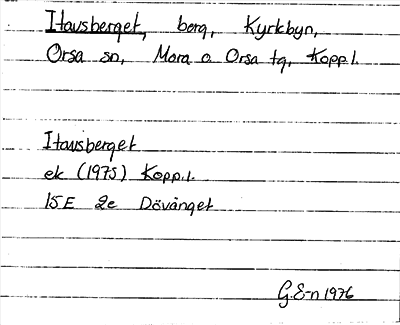 Itausberget, berg, Kyrkbyn,
Orsa sn, Mora o Orsa tg, Kopp.l.
Itausberget
ek (1975) Kopp.l.
15E 2e Dövånget
G.E-n 1976